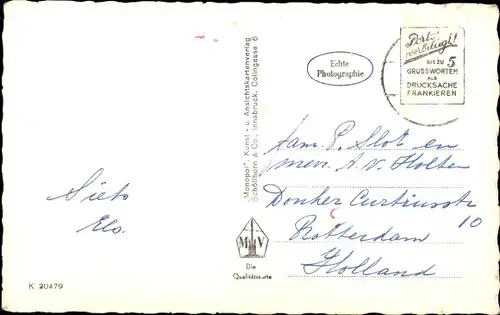 Porto-
verbilligt!
BIS ZU 5
GRUSSWORTEN
ALS
DRUCKSACHE
FRANKIEREN
Echte
Photographie
„Monopol", Kunst - u. Ansichtskartenverlag
Schöllhorn & Co., Innsbruck, Colingasse 6
Fam. P. Slot en
mevr. A. V. Holten
Donker Curtiusstr
10
Rotterdam
Holland
Sieto
Els.
M V
Die
Qualitätskarte
K 20479